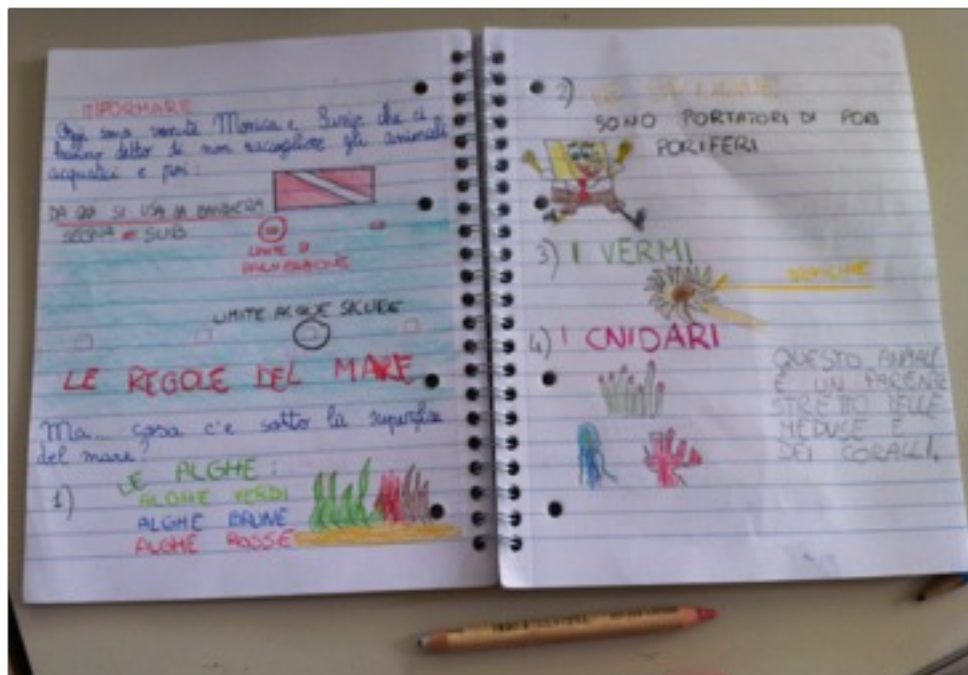 INFORMARE
Oggi sono venute Monica e che ci
hanno detto di non raccogliere gli animali
acquatici e poi:
DA QUI SI USA LA BANDIERA
SEGNA SUB
LIMITE DI
BALNEAZIONE
LIMITE ACQUE SICURE
LE REGOLE DEL MARE
Ma... cosa c'è sotto la superficie
del mare?
1) LE ALGHE:
ALGHE VERDI
ALGHE BRUNE
ALGHE ROSSE
2) LE SPUGNE
SONO PORTATORI DI PORI
PORIFERI
3) I VERMI
4) I CNIDARI
QUESTO ANIMALE
È UN PARENTE
STRETTO DELLE
MEDUSE E
DEI CORALLI.